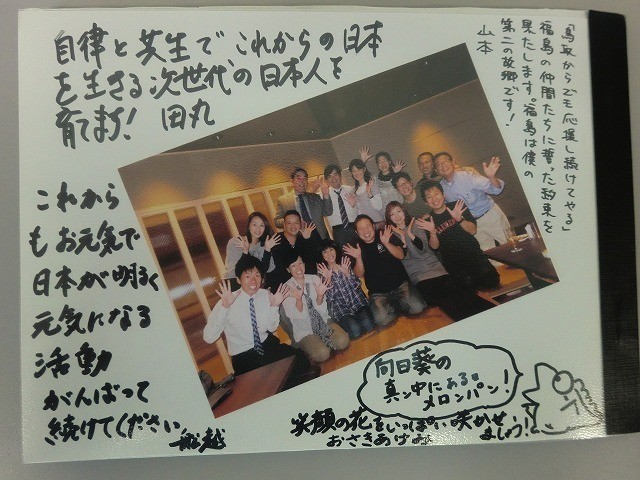 自律と共生で、これからの日本
を生きる次世代の日本人を
育てます! 田丸
「鳥取からでも応援し続けてやる」
福島の仲間たちに誓った約束を
果たします。福島は僕の
第二の故郷です!
山本
これから
もお元気で
日本が明るく
元気になる
活動
がんばって
続けてください
船越
向日葵の
真ン中にあるは
メロンパン!
笑顔の花をいっぱい咲かせ
ましょう!
おさきあけみ